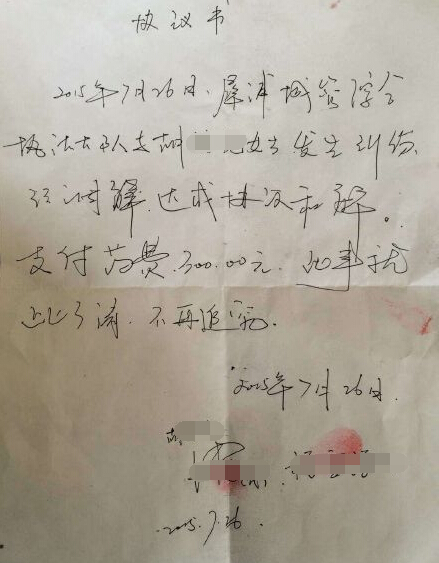 协议书
2015年7月26日,犀浦城管综合
执法大队与胡 女士发生纠纷,
经调解,达成协议和解。
支付药费300.00元.此事就
此了清,不再追究.
2015年7月26日.
2015.7.26.